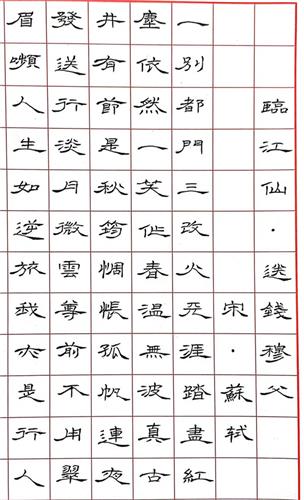 臨江仙·送錢穆父
宋·蘇軾
一別都門三改火天涯踏盡紅
塵依然一笑作春溫無波真古
井有節是秋筠惆悵孤帆連夜
發送行淡月微雲尊前不用翠
眉嚬人生如逆旅我亦是行人